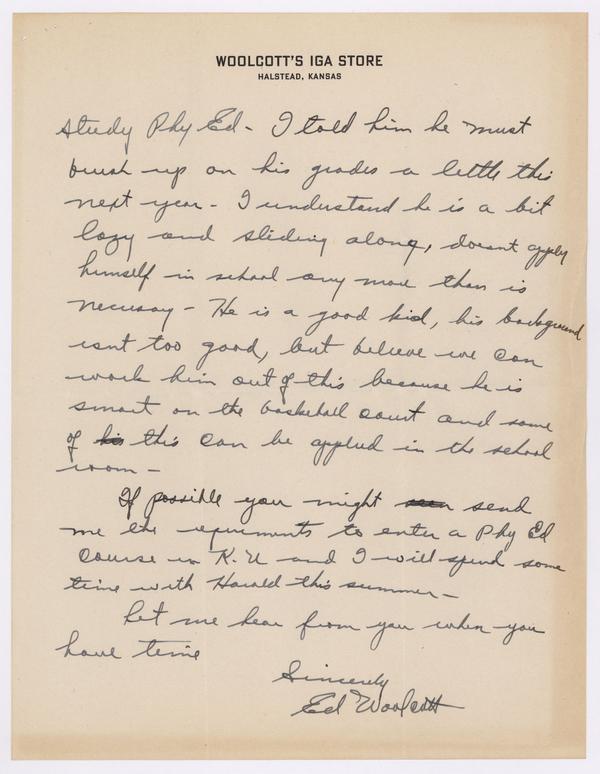 WOOLCOTT'S IGA STORE
HALSTEAD, KANSAS
study Phy Ed - I told him he must
brush up on his grades a little this
next year - I understand he is a bit
lazy and sliding along, doesnt apply
himself in school any more than is
necessay - He is a good kid, his background
isnt too good, but believe we can
work him out of this because he is
smart on the basketball court and some
of his this can be applied in the school
room -
If possible you might send
me the requirments to enter a Phy Ed
course in K.U and I will spend some
time with Harold this summer -
Let me hear from you when you
have time
Sincerely
Ed Woolcott